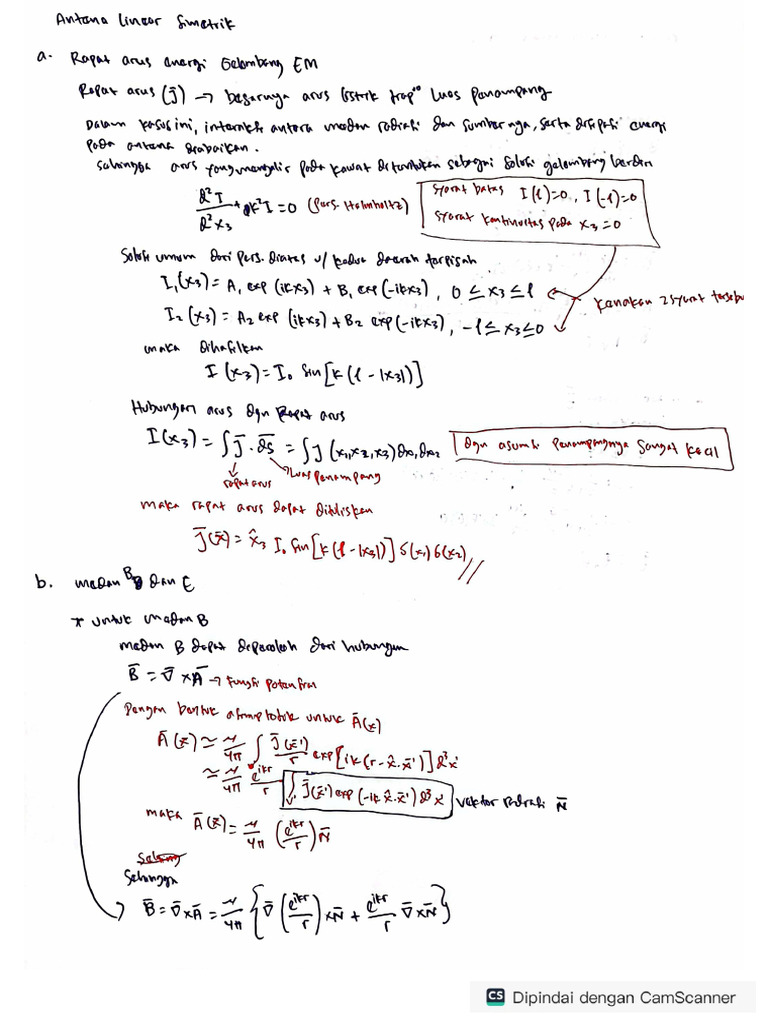 Antena Linear Simetrik
a. Rapat arus energi Gelombang EM
Rapat arus (J̄) → besarnya arus listrik tiap Luas Penampang
Dalam kasus ini, interaksi antara medan radiasi dan sumbernya, serta disipasi energi
pada antena diabaikan.
Sehingga arus yang mengalir pada kawat ditentukan sebagai solusi gelombang berdiri
d²I/d²x₃ + k²I = 0 (Pers. Helmholtz)
syarat batas I(l)=0, I(-l)=0
syarat kontinuitas pada x₃=0
Solusi umum dari pers. diatas u/ kedua daerah terpisah
I₁(x₃) = A₁ exp(ikx₃) + B₁ exp(-ikx₃), 0 ≤ x₃ ≤ l
kenakan 2 syarat tersebu
I₂(x₃) = A₂ exp(ikx₃) + B₂ exp(-ikx₃), -l ≤ x₃ ≤ 0
maka dihasilkan
I(x₃) = I₀ sin[k(l - |x₃|)]
Hubungan arus dgn Rapat arus
I(x₃) = ∫ J̄ · ds̄ = ∫ J(x₁,x₂,x₃) dx₁dx₂
dgn asumsi Penampangnya Sangat kecil
rapat arus
Luas penampang
maka rapat arus dapat dituliskan
J̄(x̄) = x̂₃ I₀ sin[k(l - |x₃|)] δ(x₁) δ(x₂) //
b. medan B dan E
* untuk medan B
medan B dapat diperoleh dari hubungan
B̄ = ∇̄ × Ā → fungsi potensial
Dengan bentuk asimptotik untuk Ā(x)
Ā(x̄) ≃ μ/4π ∫ J̄(x̄')/r exp[ik(r - x̂·x̄')] d³x'
≃ μ/4π e^{ikr}/r ∫ J̄(x̄') exp(-ik x̂·x̄') d³x' vektor radiasi N̄
maka Ā(x̄) = μ/4π (e^{ikr}/r) N̄
Sehingga
B̄ = ∇̄ × Ā = μ/4π {∇̄(e^{ikr}/r) × N̄ + e^{ikr}/r ∇̄ × N̄}
CS Dipindai dengan CamScanner